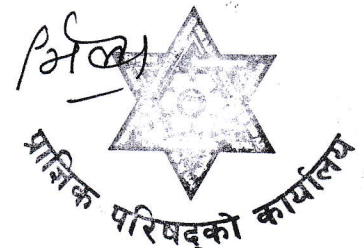 प्राज्ञिक परिषदको कार्यालय